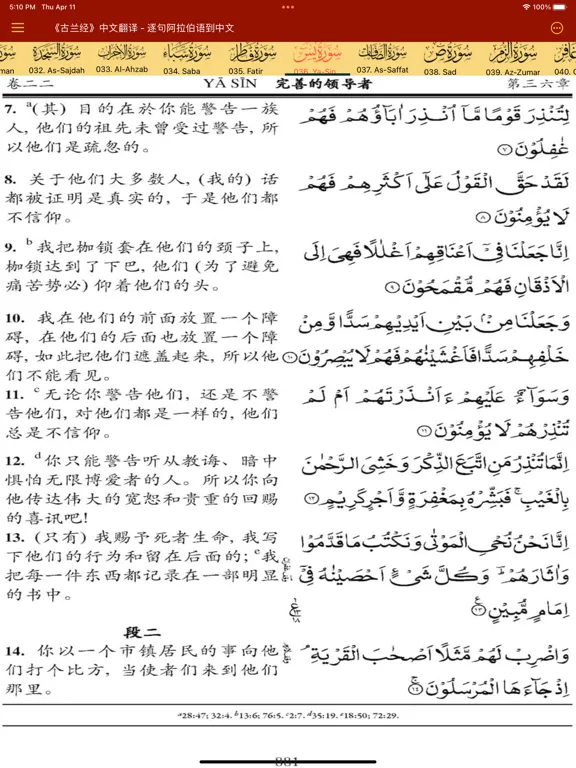 5:10 PM Thu Apr 11
100%
《古兰经》中文翻译 - 逐句阿拉伯语到中文
032. As-Sajdah 033. Al-Ahzab 034. Saba 035. Fatir 036. Ya-Sin 037. As-Saffat 038. Sad 039. Az-Zumar 040.
卷二二 YĀ SĪN 完善的领导者 第三六章
7. a(其) 目的在於你能警告一族
人, 他们的祖先未曾受过警告, 所
以他们是疏忽的。
لِتُنْذِرَ قَوْمًا مَّآ اُنْذِرَ اٰبَآؤُهُمْ فَهُمْ
غٰفِلُوْنَ ۝٧
8. 关于他们大多数人, (我的) 话
都被证明是真实的, 于是他们都
不信仰。
لَقَدْ حَقَّ الْقَوْلُ عَلٰٓى اَكْثَرِهِمْ فَهُمْ
لَا يُؤْمِنُوْنَ ۝٨
9. b我把枷锁套在他们的颈子上,
枷锁达到了下巴, 他们 (为了避免
痛苦势必) 仰着他们的头。
اِنَّا جَعَلْنَا فِيْٓ اَعْنَاقِهِمْ اَغْلٰلًا فَهِيَ اِلَى
الْاَذْقَانِ فَهُمْ مُّقْمَحُوْنَ ۝٩
10. 我在他们的前面放置一个障
碍, 在他们的后面也放置一个障
碍, 如此把他们遮盖起来, 所以他
们不能看见。
وَجَعَلْنَا مِنْۢ بَيْنِ اَيْدِيْهِمْ سَدًّا وَّمِنْ
خَلْفِهِمْ سَدًّا فَاَغْشَيْنٰهُمْ فَهُمْ لَا يُبْصِرُوْنَ ۝١٠
11. c无论你警告他们, 还是不警
告他们, 对他们都是一样的, 他们
总是不信仰。
وَسَوَآءٌ عَلَيْهِمْ ءَاَنْذَرْتَهُمْ اَمْ لَمْ
تُنْذِرْهُمْ لَا يُؤْمِنُوْنَ ۝١١
12. d你只能警告听从教诲、暗中
惧怕无限博爱者的人。所以你向
他传达伟大的宽恕和贵重的回赐
的喜讯吧!
اِنَّمَا تُنْذِرُ مَنِ اتَّبَعَ الذِّكْرَ وَخَشِيَ الرَّحْمٰنَ
بِالْغَيْبِ ۚ فَبَشِّرْهُ بِمَغْفِرَةٍ وَّاَجْرٍ كَرِيْمٍ ۝١٢
13. (只有) 我赐予死者生命, 我写
下他们的行为和留在后面的; e我
把每一件东西都记录在一部明显
的书中。
اِنَّا نَحْنُ نُحْيِ الْمَوْتٰى وَنَكْتُبُ مَا قَدَّمُوْا
وَاٰثَارَهُمْ ؕ وَكُلَّ شَيْءٍ اَحْصَيْنٰهُ فِيْٓ
اِمَامٍ مُّبِيْنٍ ۝١٣
段二
14. 你以一个市镇居民的事向他
们打个比方, 当使者们来到他们
那里。
وَاضْرِبْ لَهُمْ مَّثَلًا اَصْحٰبَ الْقَرْيَةِ ۘ
اِذْ جَآءَهَا الْمُرْسَلُوْنَ ۝١٤
a28:47; 32:4. b13:6; 76:5. c2:7. d35:19. e18:50; 72:29.
881